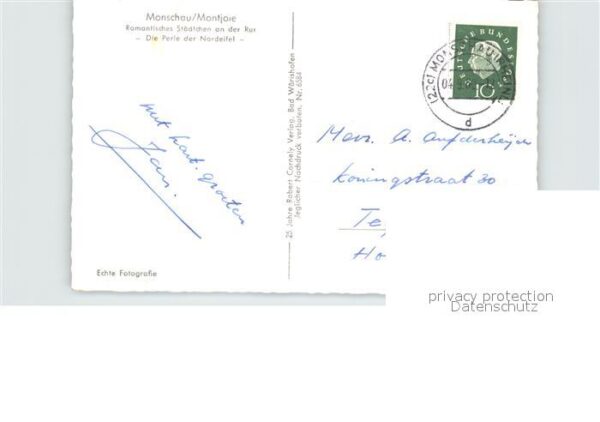 Monschau/Montjoie
Romantisches Städtchen an der Rur
– Die Perle der Nordeifel –
DEUTSCHE BUNDESPOST
10
(22c) MONSCHAU
04
d
met hart. groeten
Jan.
25 Jahre Robert Cornely Verlag, Bad Wörishofen
Jeglicher Nachdruck verboten. Nr. 6584
Mevr. A.
Koningstraat 30
Te
Ho
Echte Fotografie
privacy protection
Datenschutz